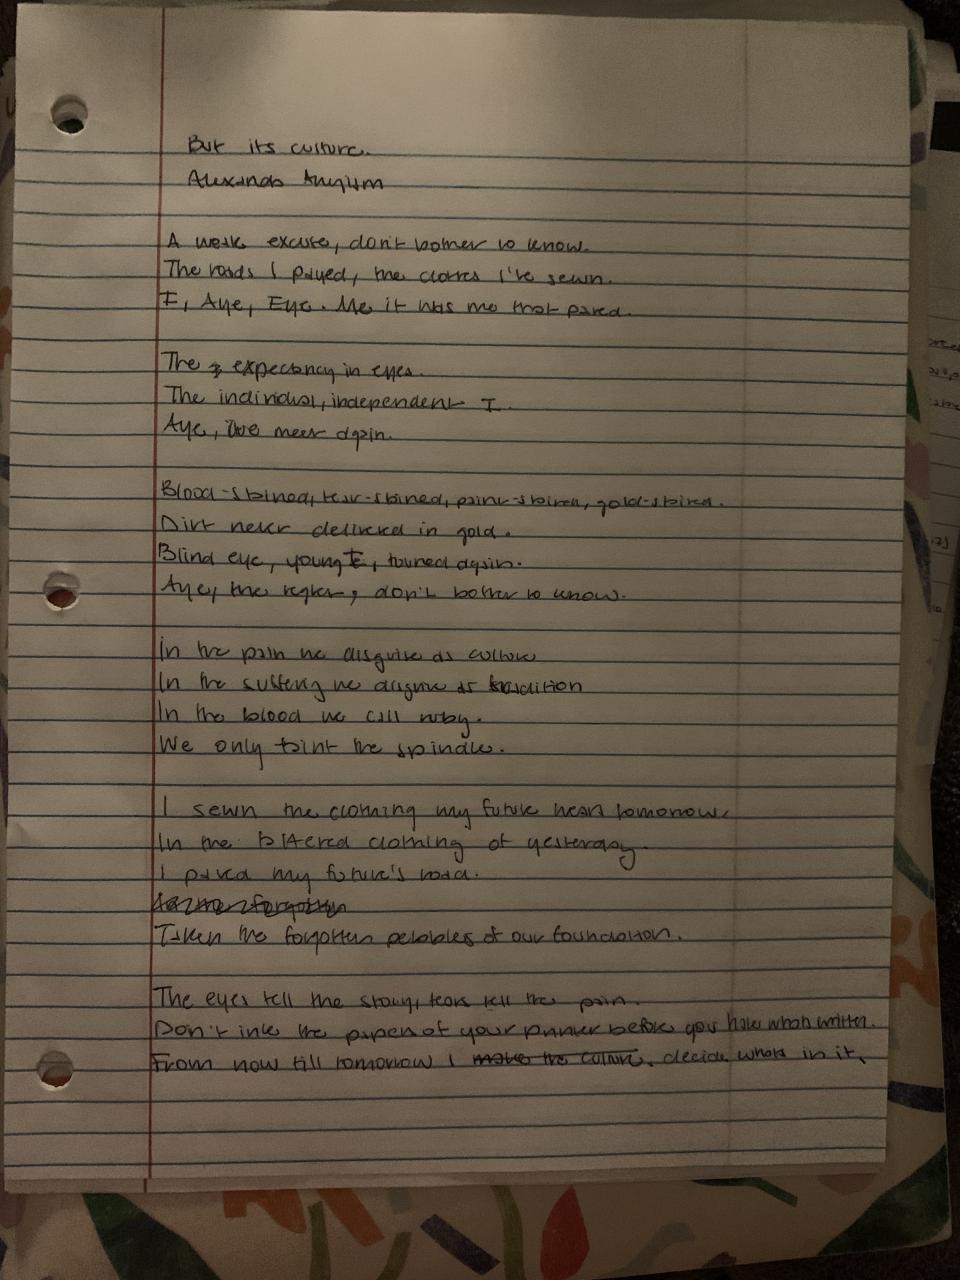 But its culture.
A weak excuse, don't bother to know.
The roads I paved, the clothes I've sewn.
I, Aye, Eye. Me it was me that paved.
The expectancy in eyes.
The individual, independent I.
Aye, we meet again.
Blood-stained, tear-stained, paint-stained, gold-stained.
Dirt never delivered in gold.
Blind eye, young I, turned again.
Aye, the , don't bother to know.
In the pain we disguise as culture
In the suffering we disguise as tradition
In the blood we call ruby.
We only taint the spindle.
I sewn the clothing my future wears tomorrow.
In the tattered clothing of yesterday.
I paved my future's road.
Taken the forgotten pebbles of our foundation.
The eyes tell the story, tears tell the pain.
Don't ink the papers of your before you have whats written.
From now till tomorrow I make the culture, decide whats in it.